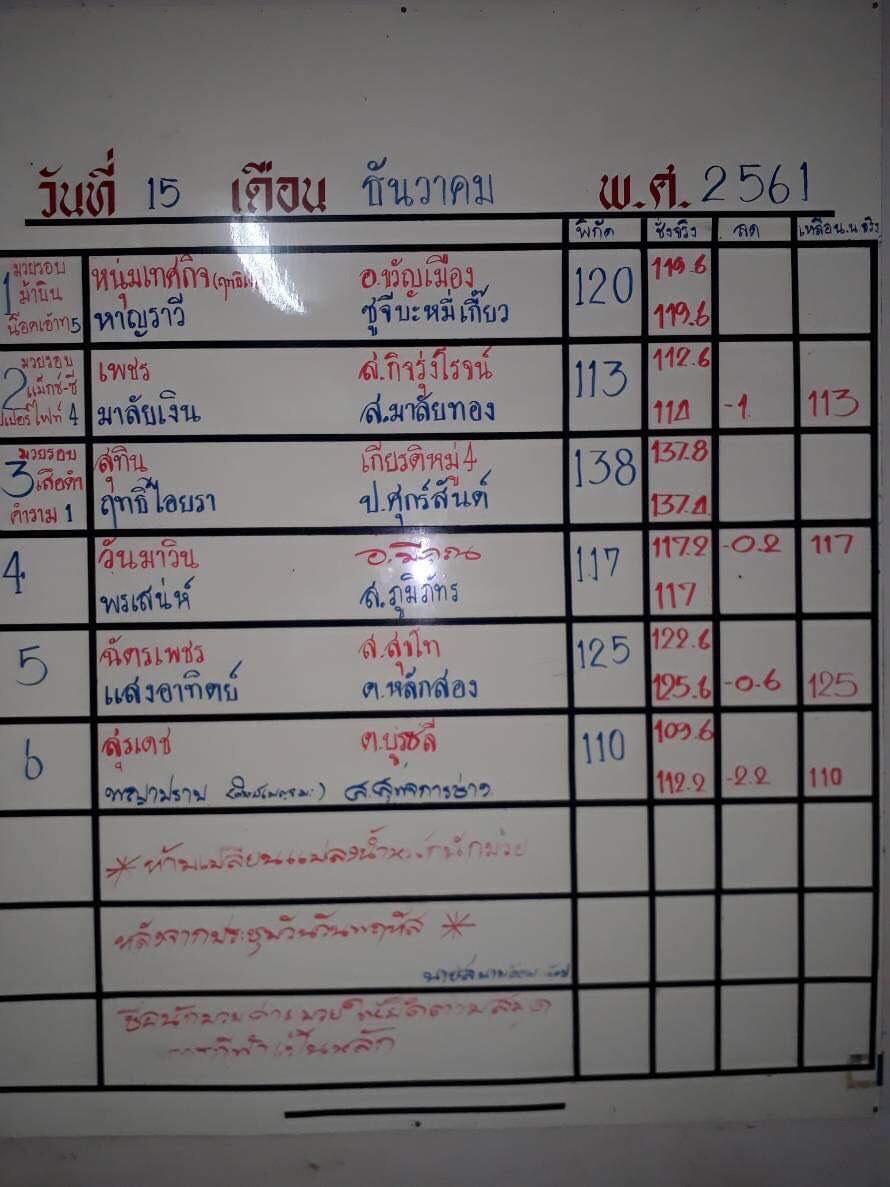 วันที่ 15 เดือน ธันวาคม พ.ศ. 2561
พิกัด ชั่งจริง ลด เหลือน.น จริง
1 มวยรอบ ม้าบิน น็อคเอ้าท 5
หนุ่มเทศกิจ อ.ขวัญเมือง 120 119.6
หาญราวี ซูจีบะหมี่เกี๊ยว 119.6
2 มวยรอบ แม็กซ์-ซี เปอร์ไฟท์ 4
เพชร ส.กิจรุ่งโรจน์ 113 112.6
มาลัยเงิน ส.มาลัยทอง 114 -1 113
3 มวยรอบ เสือดำ คำราม 1
สุทิน เกียรติหมู่4 138 137.8
ฤทธิ์ไอยรา ป.ศุกร์สันต์ 137.4
4 วันมาวิน 117 117.2 -0.2 117
พรเสน่ห์ ส.ภูมิภัทร 117
5 ฉัตรเพชร ส.สุขโท 125 122.6
แสงอาทิตย์ ต.หลักสอง 125.6 -0.6 125
6 สุรเดช ต.บูรชลี 110 109.6
พญาปราบ 112.2 -2.2 110
* ห้ามเปลี่ยนแปลงน้ำหนักนักมวย
หลังจากประชุมวันพฤหัส *
นายสนาม
ชื่อนักมวย ค่ายมวย ให้ยึดตามสมุด
การกีฬาเป็นหลัก